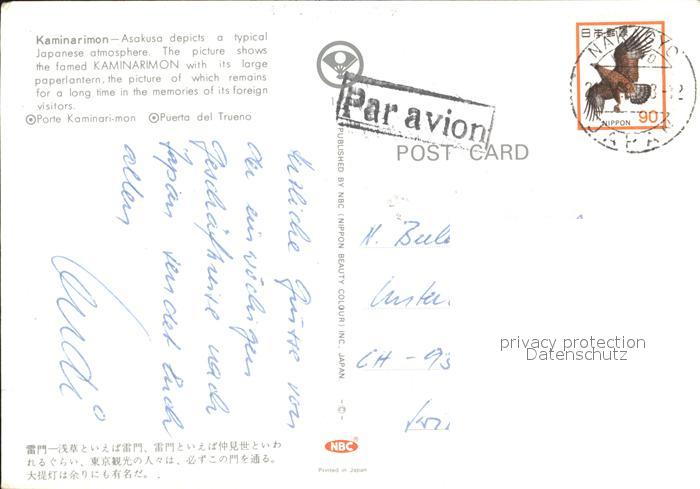 Kaminarimon—Asakusa depicts a typical
Japanese atmosphere. The picture shows
the famed KAMINARIMON with its large
paperlantern, the picture of which remains
for a long time in the memories of its foreign
visitors.
Porte Kaminari-mon Puerta del Trueno
Par avion
POST CARD
日本郵便
NIPPON 90
JAPAN
Herzliche Grüsse von
der einwöchigen
Geschäftsreise nach
Japan sendet Euch
allen
PUBLISHED BY NBC (NIPPON BEAUTY COLOUR) INC. JAPAN
CH-93
privacy protection
Datenschutz
雷門—浅草といえば雷門、雷門といえば仲見世といわ
れるぐらい、東京観光の人々は、必ずこの門を通る。
大提灯は余りにも有名だ。
NBC
Printed in Japan